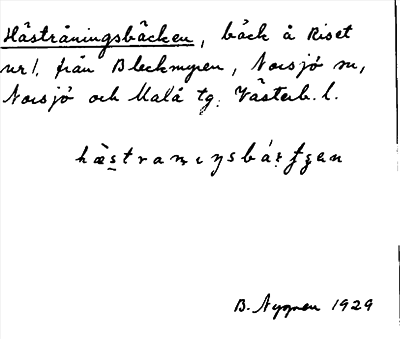 Hästråningsbäcken, bäck å Riset
url. från Bleckmyren, Norsjö sn,
Norsjö och Malå tg. Västerb. l.
B. Nygren 1929